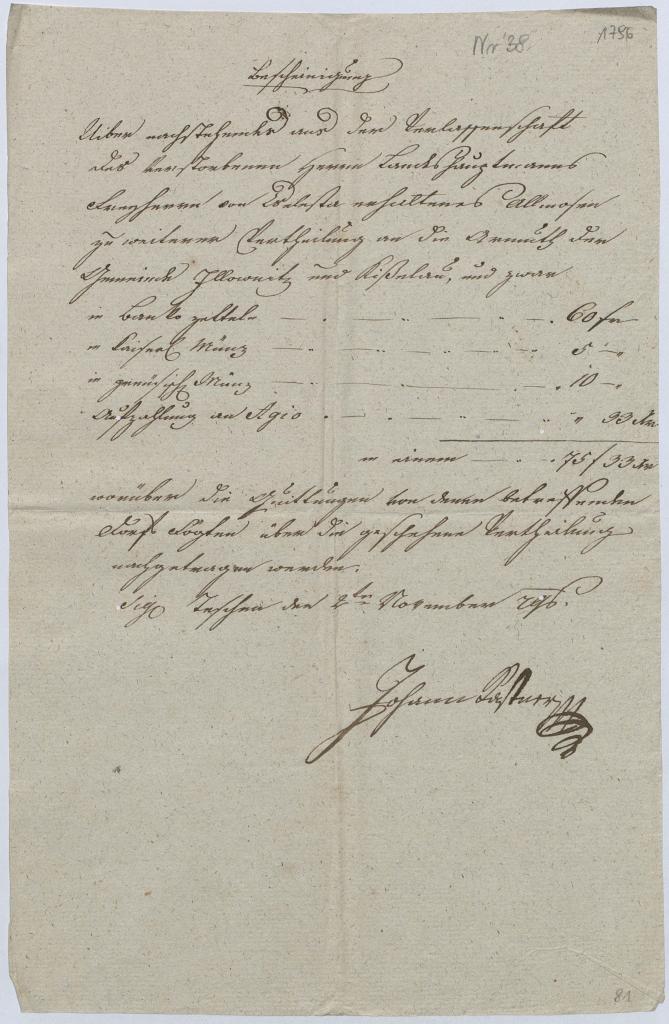 Nr 38.
1796
Bescheinigung
Uiber nachstehendes aus der Verlassenschaft
des verstorbenen Herrn Landeshauptmanns
Freyherrn von Cselesta erhaltenes Allmosen
zu weiterer Vertheilung an die Armuth der
Gemeinde Illownitz und Kißelau, und zwar
in Banko zetteln — .. — .. — .. — . 60 fr
in Kaiserl Münz — .. — .. — .. — .. 5 — "
in preüsisch Münz — .. — .. — .. — . 10 — "
Aufzahlung an Agio . — .. — .. — .. — " 33 Kr
in einem — .. — . 75 / 33 Kr
worüber die Quittungen von denen betreffenden
Dorfs Vögten über die geschehene Vertheilung
nachgetragen werden.
Sig Teschen den 2ten November 796.
Johann Pastner
81